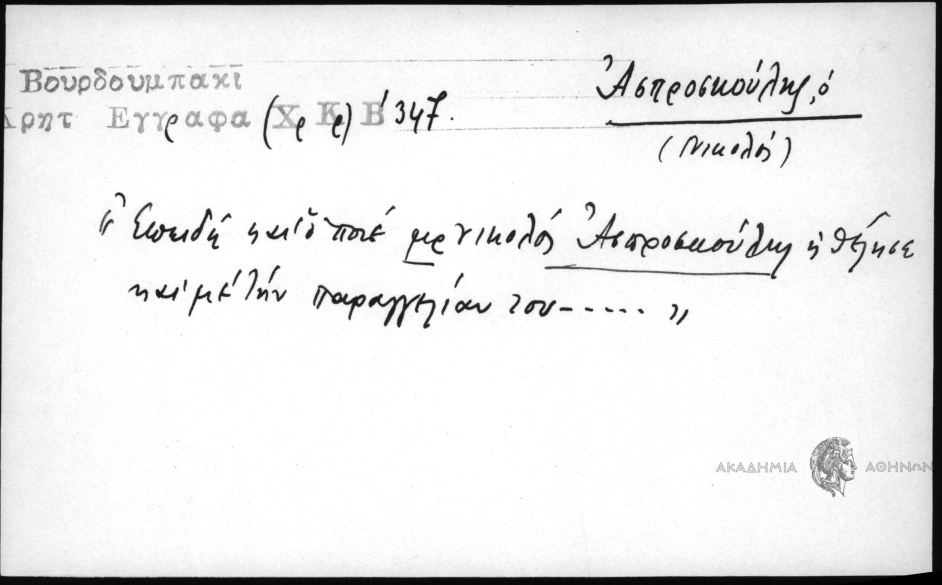 Βουρδουμπακι
Κρητ Εγγραφα (Χρρ) Κ Β' 347.
Ἀσπροσκούλης, ὁ
(Νικολός)
"Ἐπειδή καί ὁ ποτέ μρ νικολός Ἀσπροσκούλης ἠθέλησε
καί μέ τήν παραγγελίαν του------"
ΑΚΑΔΗΜΙΑ ΑΘΗΝΩΝ